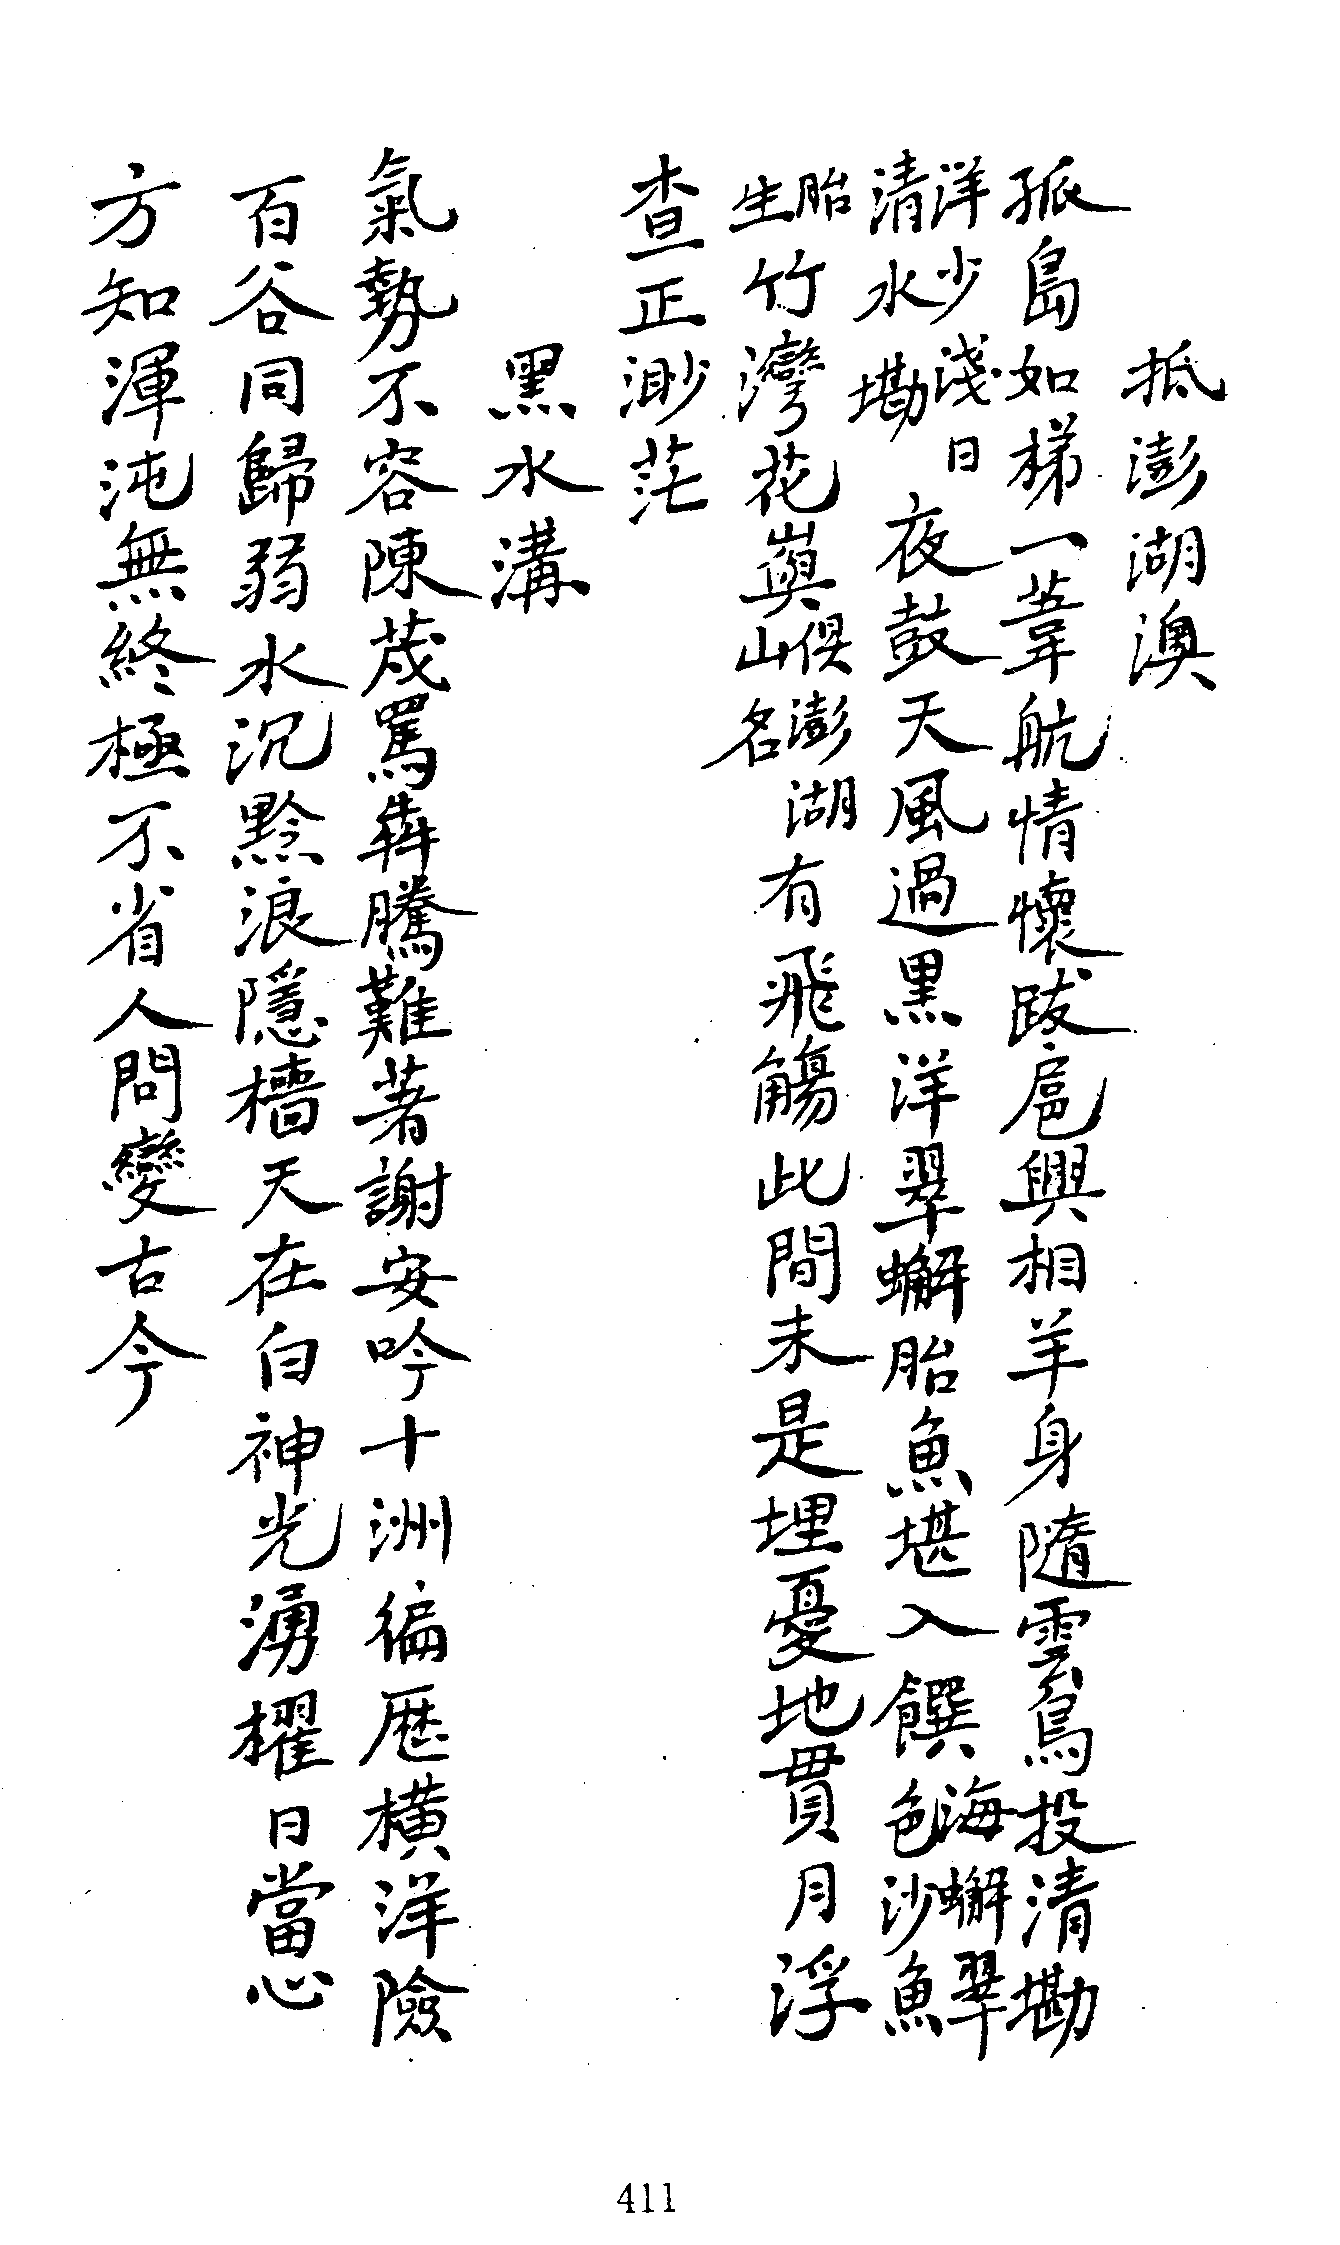 抵澎湖澳
孤島如梯一葦航情懷跋扈興相羊身隨雲鳥投清墈
洋少淺日清水墈夜鼓天風過黑洋翠蠏胎魚堪入饌海蠏翠色沙魚
胎生竹灣花嶼俱澎湖山名有飛觴此間未是埋憂地貫月浮
查正渺茫
黑水溝
氣勢不容陳茂罵犇騰難著謝安吟十洲徧歷橫洋險
百谷同歸弱水沉黔浪隱檣天在臼神光湧櫂日當心
方知渾沌無終極不省人間變古今
411